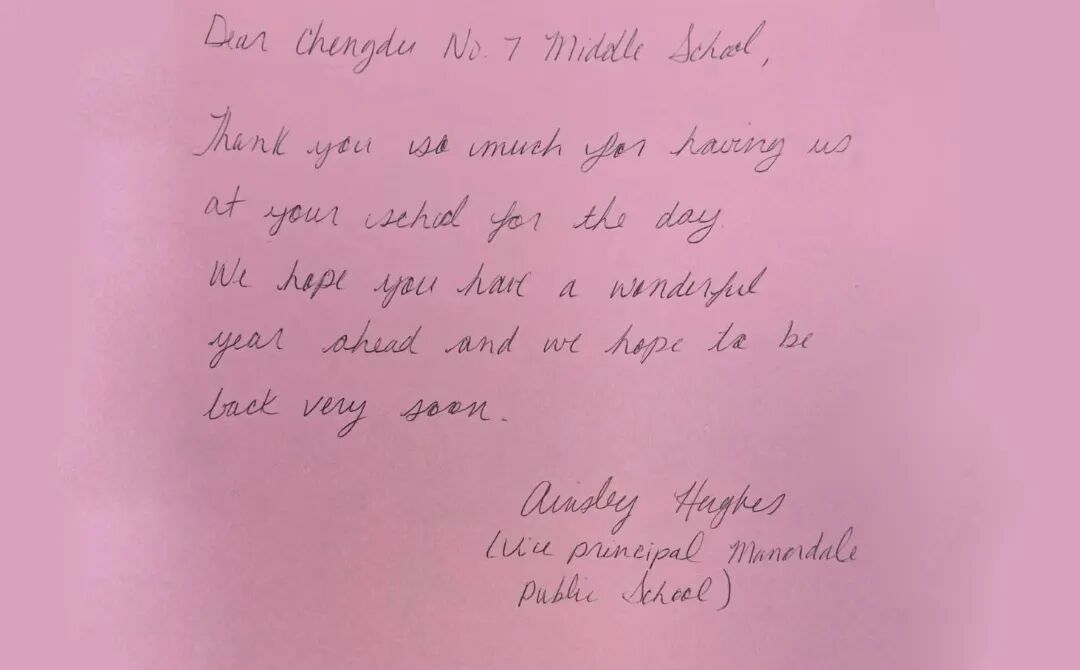 Dear Chengdu No. 7 Middle School,
Thank you so much for having us
at your school for the day.
We hope you have a wonderful
year ahead and we hope to be
back very soon.
Ainsley Hughes
(Vice principal Manordale
public School)